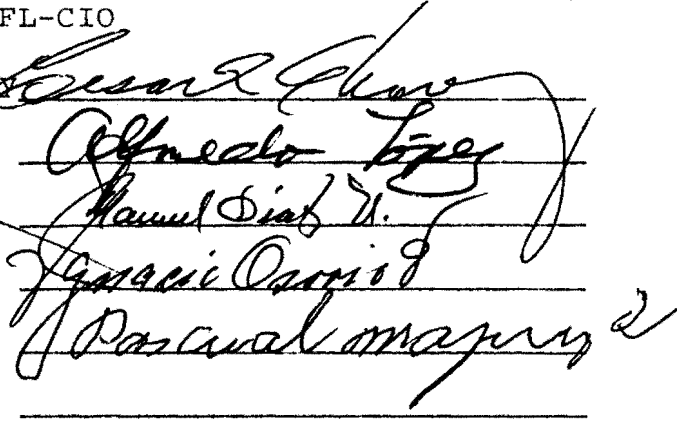 FL-CIO
Cesar E Chavez
Alfredo López
Manuel Diaz U.
Ignacio Osorio
Pascual